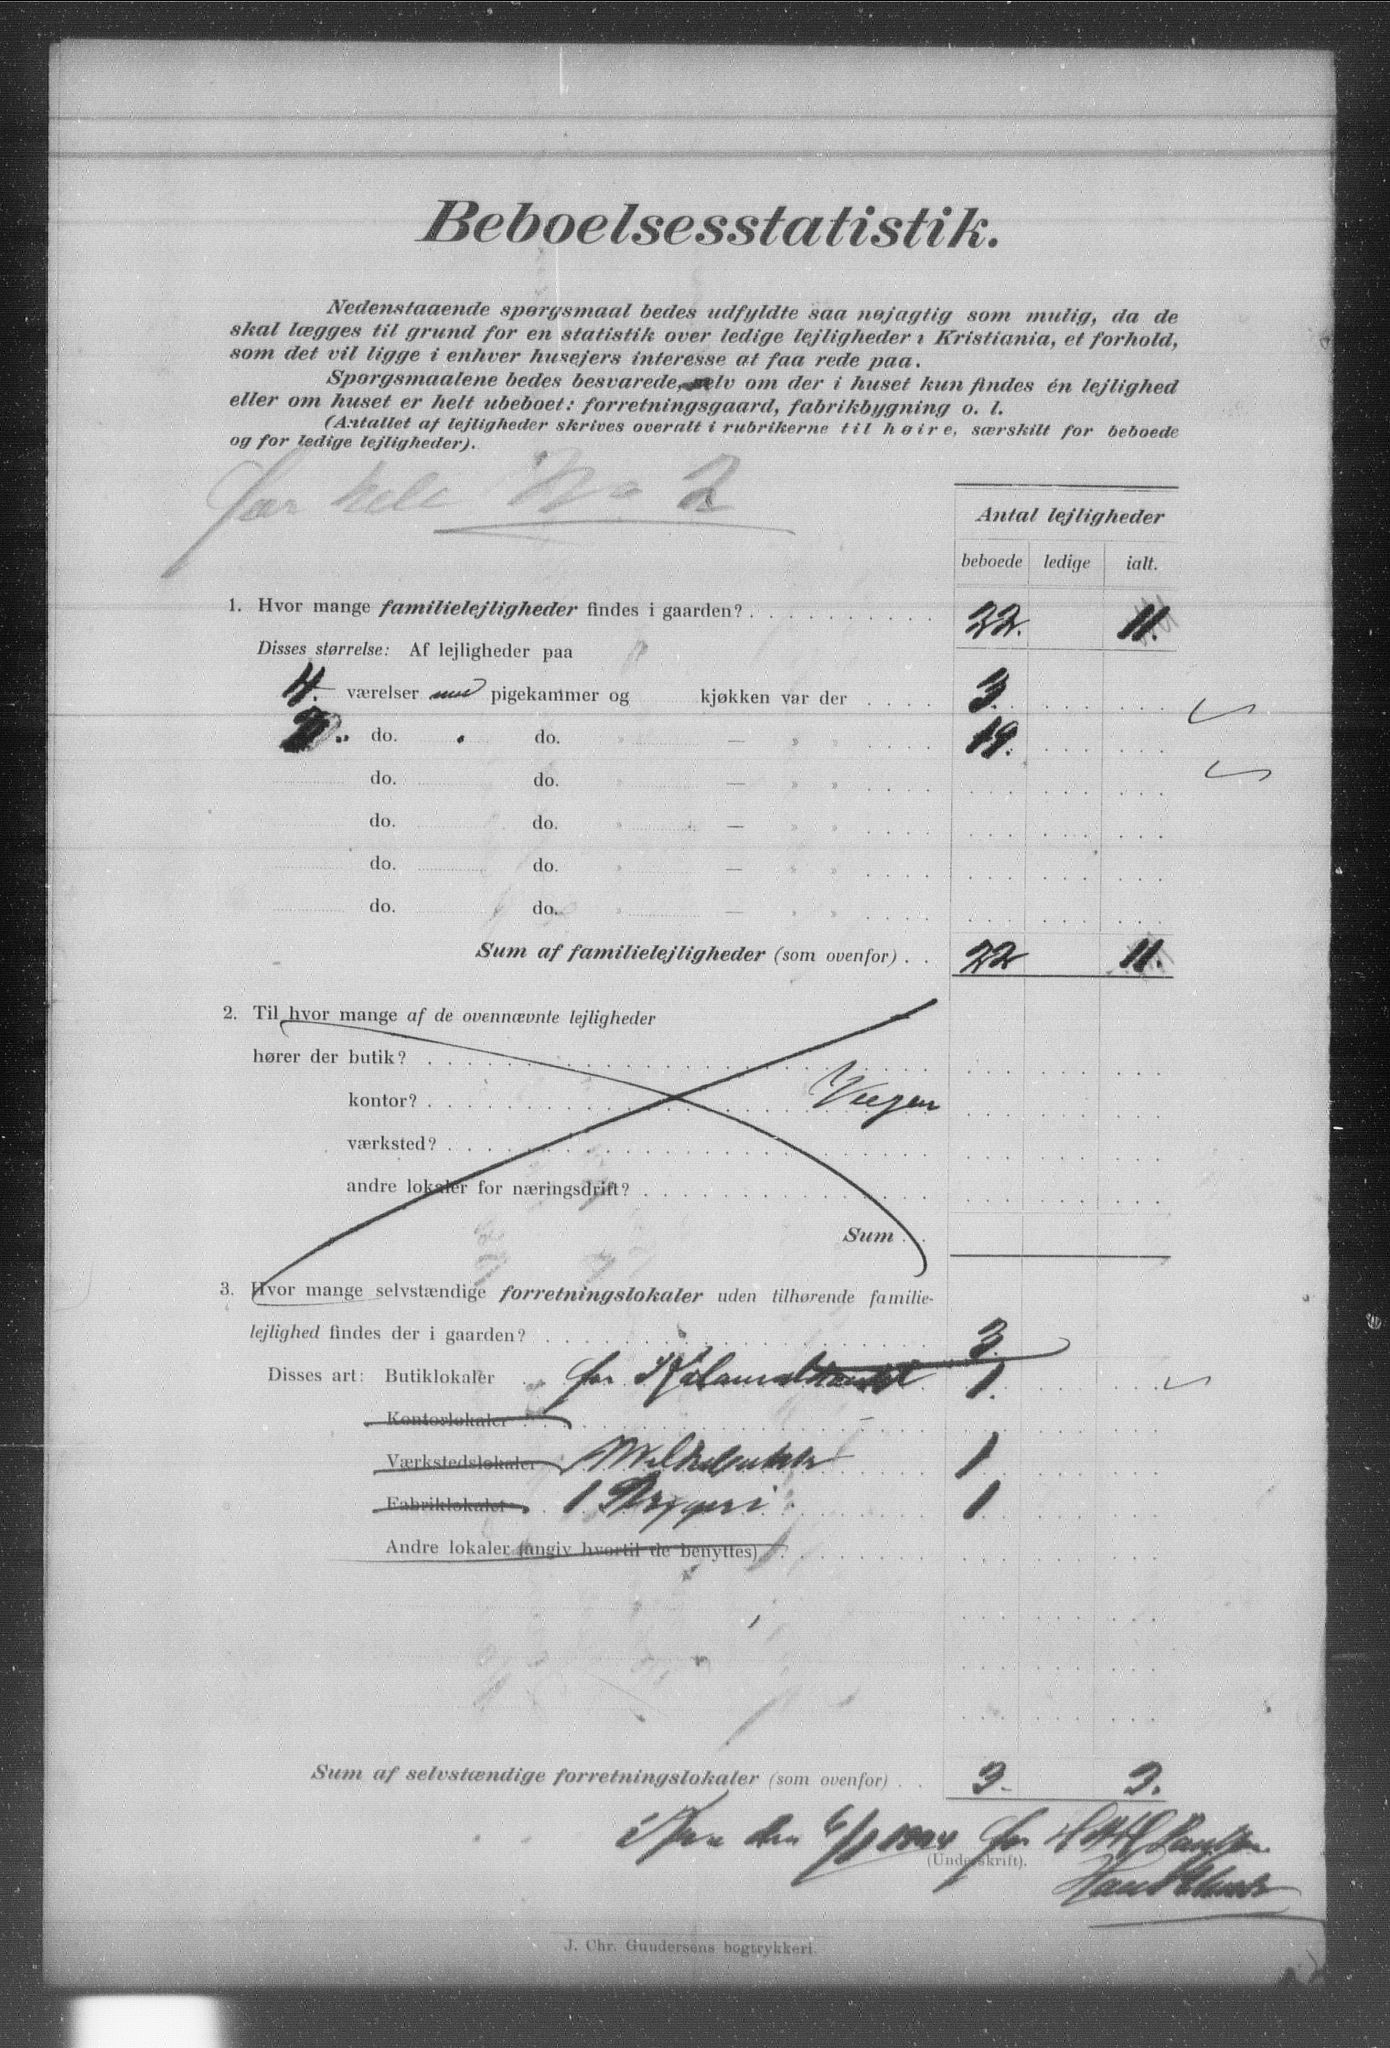 Beboelsesstatistik.
Nedenstaaende spørgsmaal bedes udfyldte saa nøjagtig som mulig, da de
skal lægges til grund for en statistik over ledige lejligheder i Kristiania, et forhold,
som det vil ligge i enhver husejers interesse at faa rede paa.
Spørgsmaalene bedes besvarede, selv om der i huset kun findes én lejlighed
eller om huset er helt ubeboet: forretningsgaard, fabrikbygning o. l.
(Antallet af lejligheder skrives overalt i rubrikerne til høire, særskilt for beboede
og for ledige lejligheder).
for hele No 2
Antal lejligheder
beboede ledige ialt.
1. Hvor mange familielejligheder findes i gaarden? 22. 11.
Disses størrelse: Af lejligheder paa
4. værelser med pigekammer og kjøkken var der 3.
do. do. — " " 19.
do. do. — " "
do. do. — " "
do. do. — " "
do. do. — " "
Sum af familielejligheder (som ovenfor) 22 11.
2. Til hvor mange af de ovennævnte lejligheder
hører der butik?
kontor?
værksted?
andre lokaler for næringsdrift?
Sum
3. Hvor mange selvstændige forretningslokaler uden tilhørende familie-
lejlighed findes der i gaarden? 3.
Disses art: Butiklokaler for 1.
Kontorlokaler
Værkstedslokaler 1
Fabriklokaler 1 1
Andre lokaler (angiv hvortil de benyttes)
Sum af selvstændige forretningslokaler (som ovenfor) 3 3.
den for
(Underskrift).
J. Chr. Gundersens bogtrykkeri.